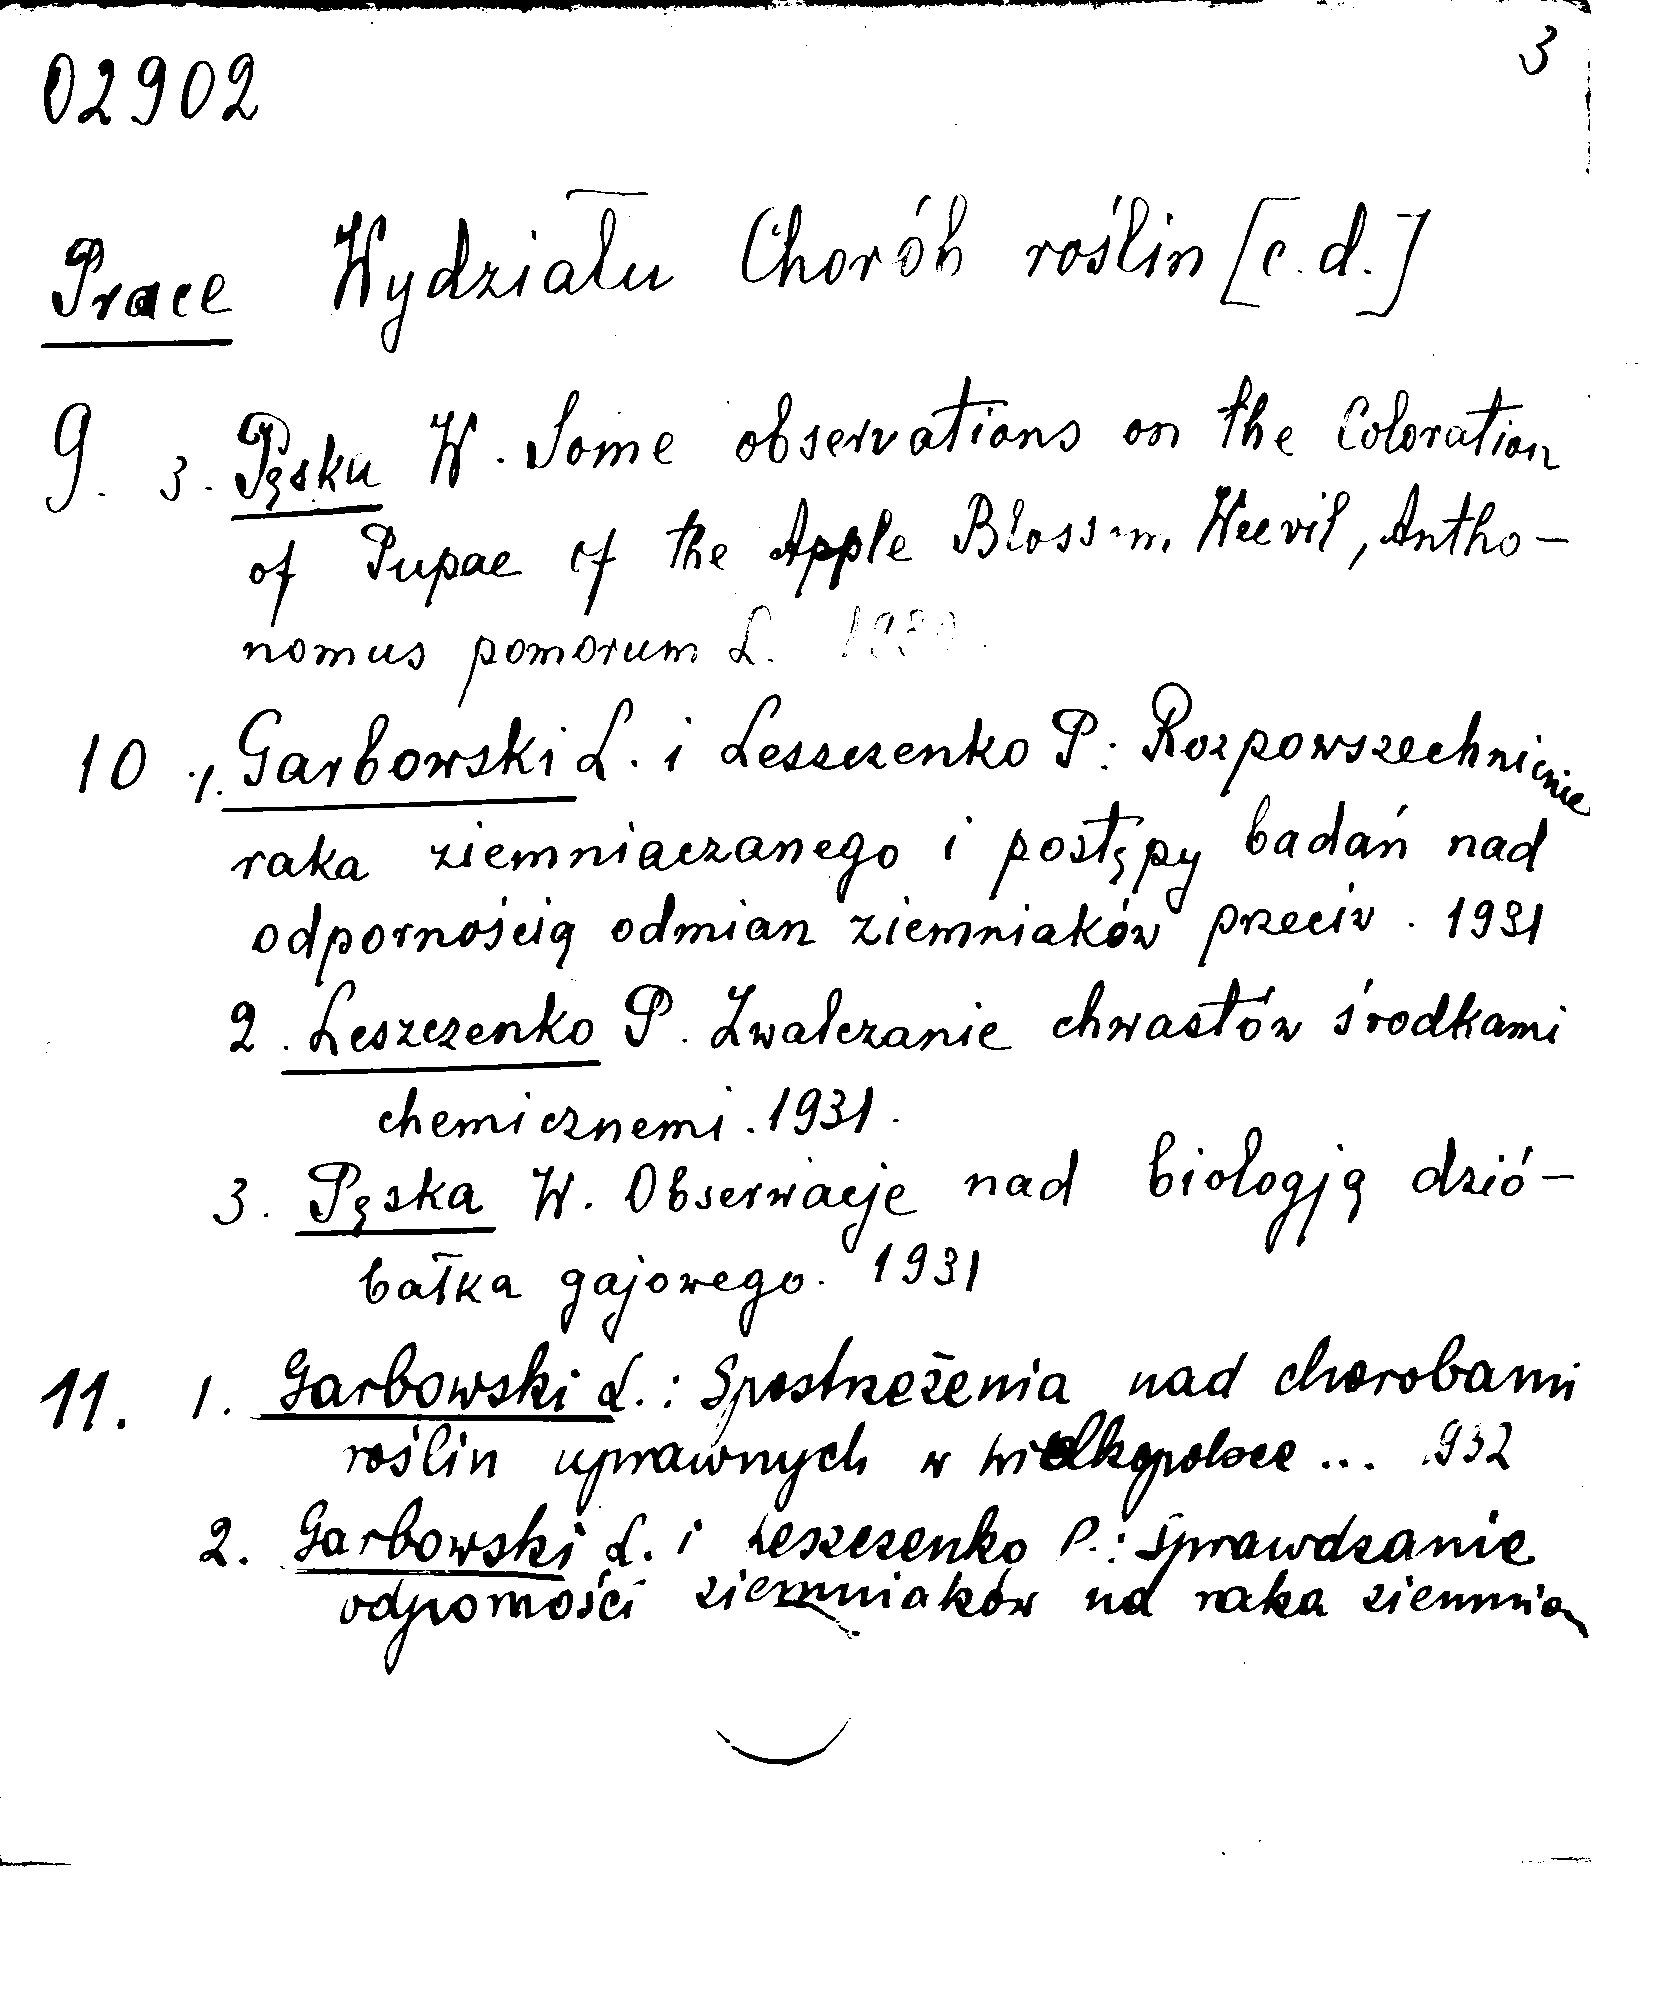 3
02902
Prace Wydziału Chorób roślin [c.d.]
9. 3. Pęsku W. Some observations on the Coloration
of Pupae of the Apple Blossom Weevil, Antho-
nomus pomorum L.
10 1. Garbowski L. i Leszczenko P: Rozpowszechnienie
raka ziemniaczanego i postępy badań nad
odpornością odmian ziemniaków przeciw. 1931
2. Leszczenko P. Zwalczanie chwastów środkami
chemicznemi. 1931.
3. Pęska W. Obserwacje nad biologją dzió-
bałka gajowego. 1931
11. 1. Garbowski L.: Spostrzeżenia nad chorobami
roślin uprawnych w wielkopolsce ... 932
2. Garbowski L. i Leszczenko P.: Sprawdzanie
odporności ziemniaków na raka ziemnia